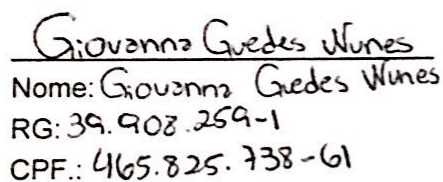 Giovanna Guedes Nunes
Nome: Giovanna Guedes Nunes
RG: 39.908.259-1
CPF.: 465.825.738-61